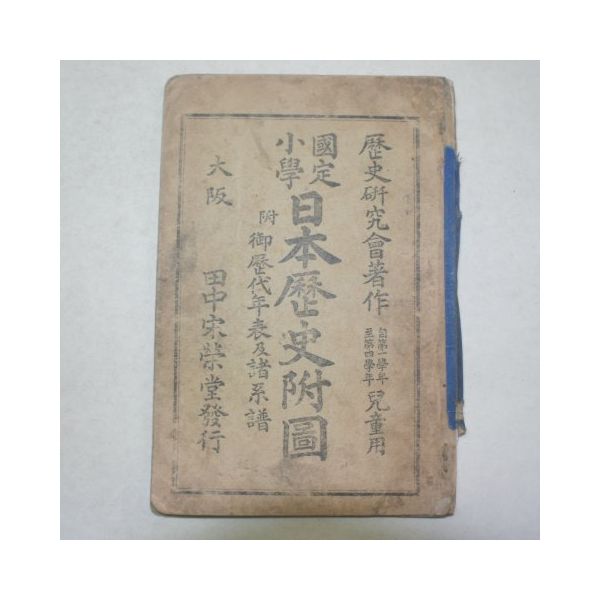 歷史硏究會著作
自第一學年
至第四學年
兒童用
國定
小學
日本歷史附圖
附
御歷代年表及諸系譜
大阪
田中宋榮堂發行